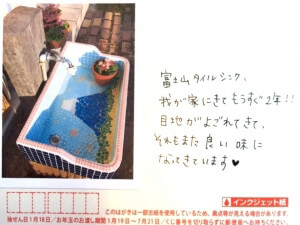 富士山タイルシンク、
我が家にきてもうすぐ2年!!
目地がよごれてきて、
それもまた良い味に
なってきています♥
インクジェット紙
このはがきは一部古紙を使用しているため、黒点等が見える場合があります。
抽せん日1月18日/お年玉のお渡し期間1月19日〜7月21日/くじ番号を切り取らずに郵便局にお持ちください。